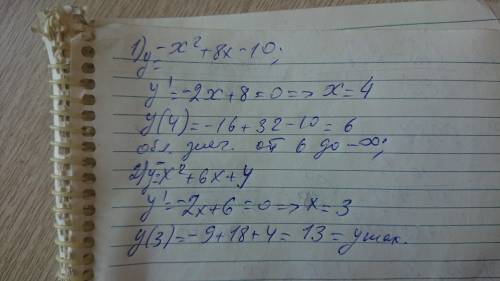 1) y=-x²+8x-10;
y'=-2x+8=0=>x=4
y(4)=-16+32-10=6
обл. знач. от 6 до -∞;
2) y=-x²+6x+4
y'=-2x+6=0=>x=3
y(3)=-9+18+4=13=yмак.